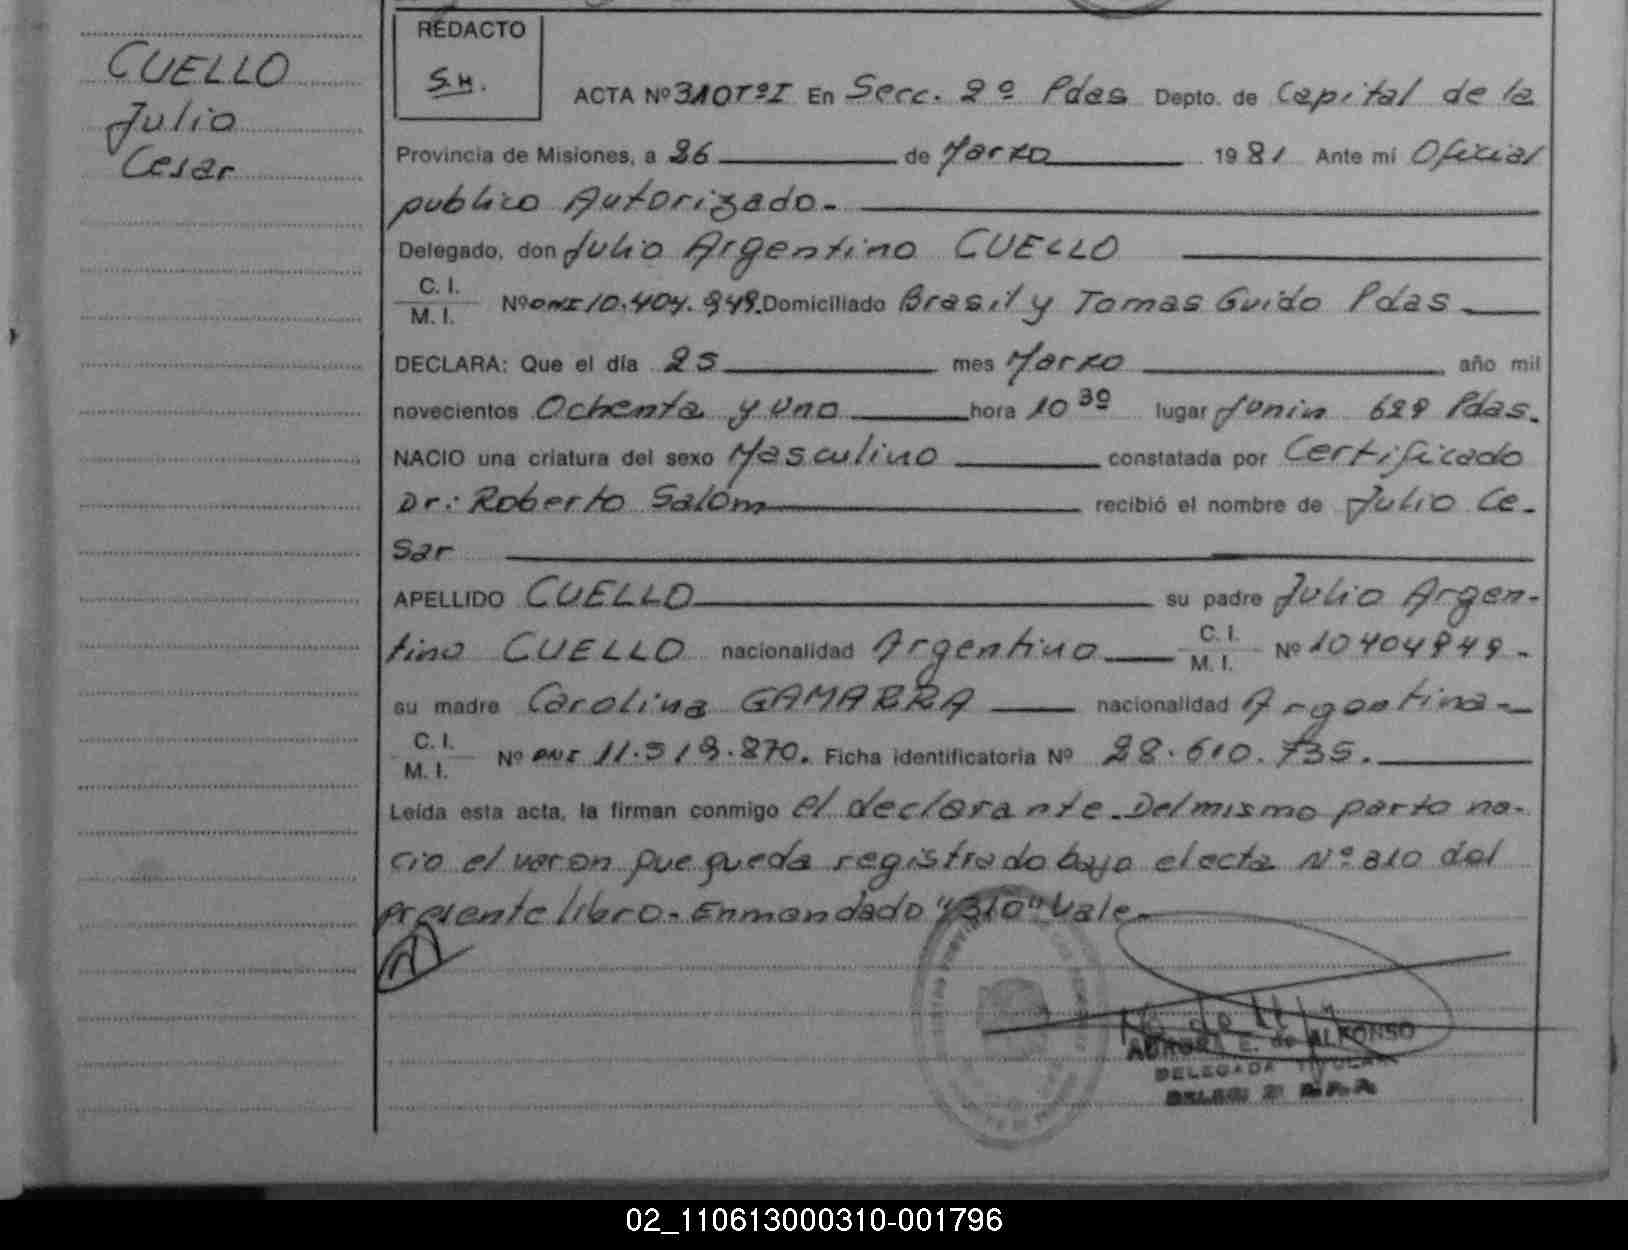 CUELLO
Julio
Cesar
REDACTO
S.H.
ACTA Nº 310 TºI En Secc. 2º Pdas Depto. de Capital de la
Provincia de Misiones, a 26 de Marzo 1981 Ante mí Oficial
publico Autorizado.-
Delegado, don Julio Argentino CUELLO
C. I.
M. I.
Nº DNI 10.404.949. Domiciliado Brasil y Tomas Guido Pdas
DECLARA: Que el día 25 mes Marzo año mil
novecientos Ochenta y uno hora 10 30 lugar Junin 629 Pdas.
NACIO una criatura del sexo Masculino constatada por Certificado
Dr: Roberto Salóm recibió el nombre de Julio Ce-
sar
APELLIDO CUELLO su padre Julio Argen-
tino CUELLO nacionalidad Argentino C. I. M. I. Nº 10404949.
su madre Carolina GAMARRA nacionalidad Argentina.-
C. I.
M. I.
Nº DNI Ficha identificatoria Nº 28.610.735.
Leída esta acta, la firman conmigo el declarante. Del mismo parto na-
cio el varon que queda registrado bajo el acta Nº 310 del
presente libro.- Enmendado "310" Vale.-
AURORA E. de ALFONSO
DELEGADA TITULAR
02_110613000310-001796